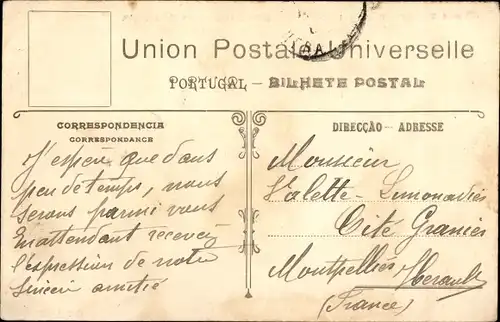 Union Postale Universelle
PORTUGAL – BILHETE POSTAL
CORRESPONDENCIA
CORRESPONDANCE
DIRECÇÃO – ADRESSE
J'espère que dans
peu de temps, nous
serons parmi vous
En attendant recevez
l'expression de notre
sincère amitié
Monsieur
Valette - Limonadier
Cité Granier
Montpellier Herault
(France)